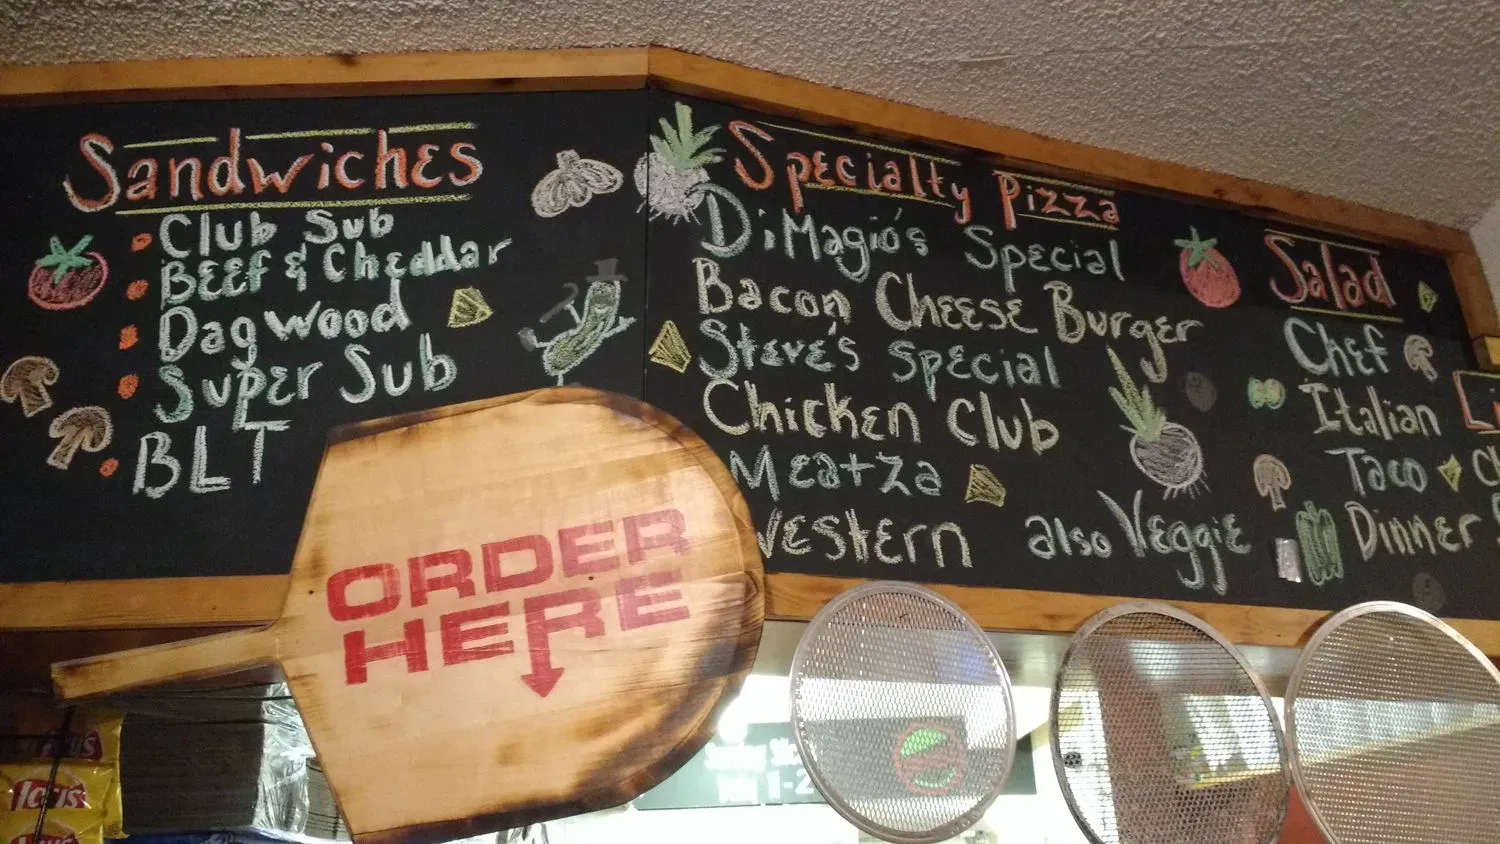 Sandwiches
Club Sub
Beef & Cheddar
Dagwood
Super Sub
BLT
Specialty Pizza
DiMagio's Special
Bacon Cheese Burger
Steve's Special
Chicken Club
Meatza
Western
also Veggie
Salad
Chef
Italian
Taco
Dinner
ORDER
HERE
Lay's
Lay's